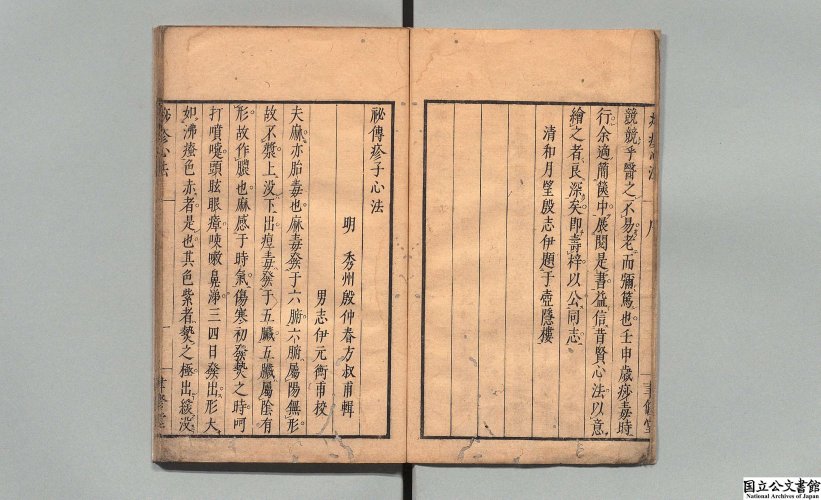 兢兢乎醫之不易老而彌篤也壬申歲痧毒時
行余適簡篋中展閱是書益信昔賢心法以意
繪之者良深矣即壽梓以公同志
清和月望殷志伊題于壺隱樓
祕傳疹子心法
明 秀州殷仲春方叔甫輯
男志伊元衡甫校
夫麻亦胎毒也麻毒發于六腑六腑屬陽無形
故不漿上没下出痘毒發于五臟五臟屬陰有
形故作膿也麻感于時氣傷寒初發熱之時呵
打噴嚏頭眩眼瘴咳嗽鼻淨三四日發出形大
如沸瘡色赤者是也其色紫者熱之極出緩没
疹心法
国立公文書館
National Archives of Japan